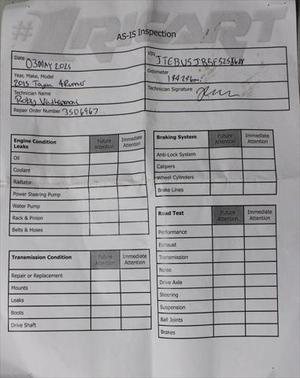 AS-IS Inspection
Date
03 MAY 2025
VIN
Odometer
Year, Make, Model
2015 Toyota 4Runner
Technician Signature
Technician Name
Roby
Repair Order Number:
3506967
Engine Condition Leaks
Future Attention
Immediate Attention
Oil
Coolant
Radiator
Power Steering Pump
Water Pump
Rack & Pinion
Belts & Hoses
Transmission Condition
Future Attention
Immediate Attention
Repair or Replacement
Mounts
Leaks
Boots
Drive Shaft
Braking System
Future Attention
Immediate Attention
Anti-Lock System
Calipers
Wheel Cylinders
Brake Lines
Road Test
Future Attention
Immediate Attention
Performance
Exhaust
Transmission
Noise
Drive Axle
Steering
Suspension
Ball Joints
Brakes